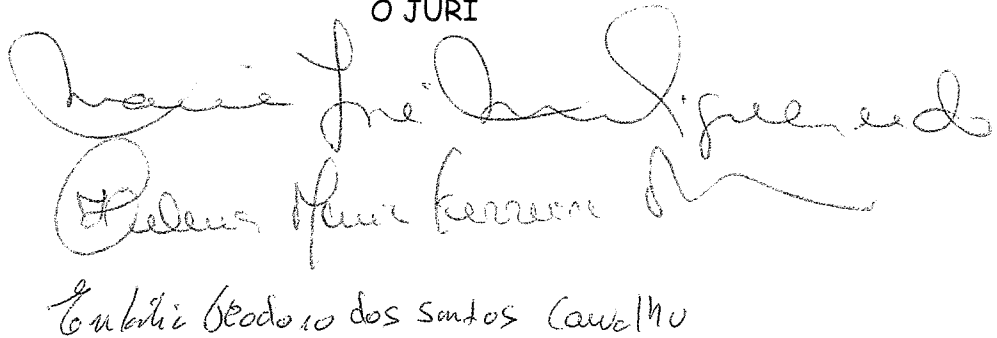 O JÚRI
Maria José Figueiredo
Helena Maria Ferreira
Eulália Teodoro dos Santos Carvalho